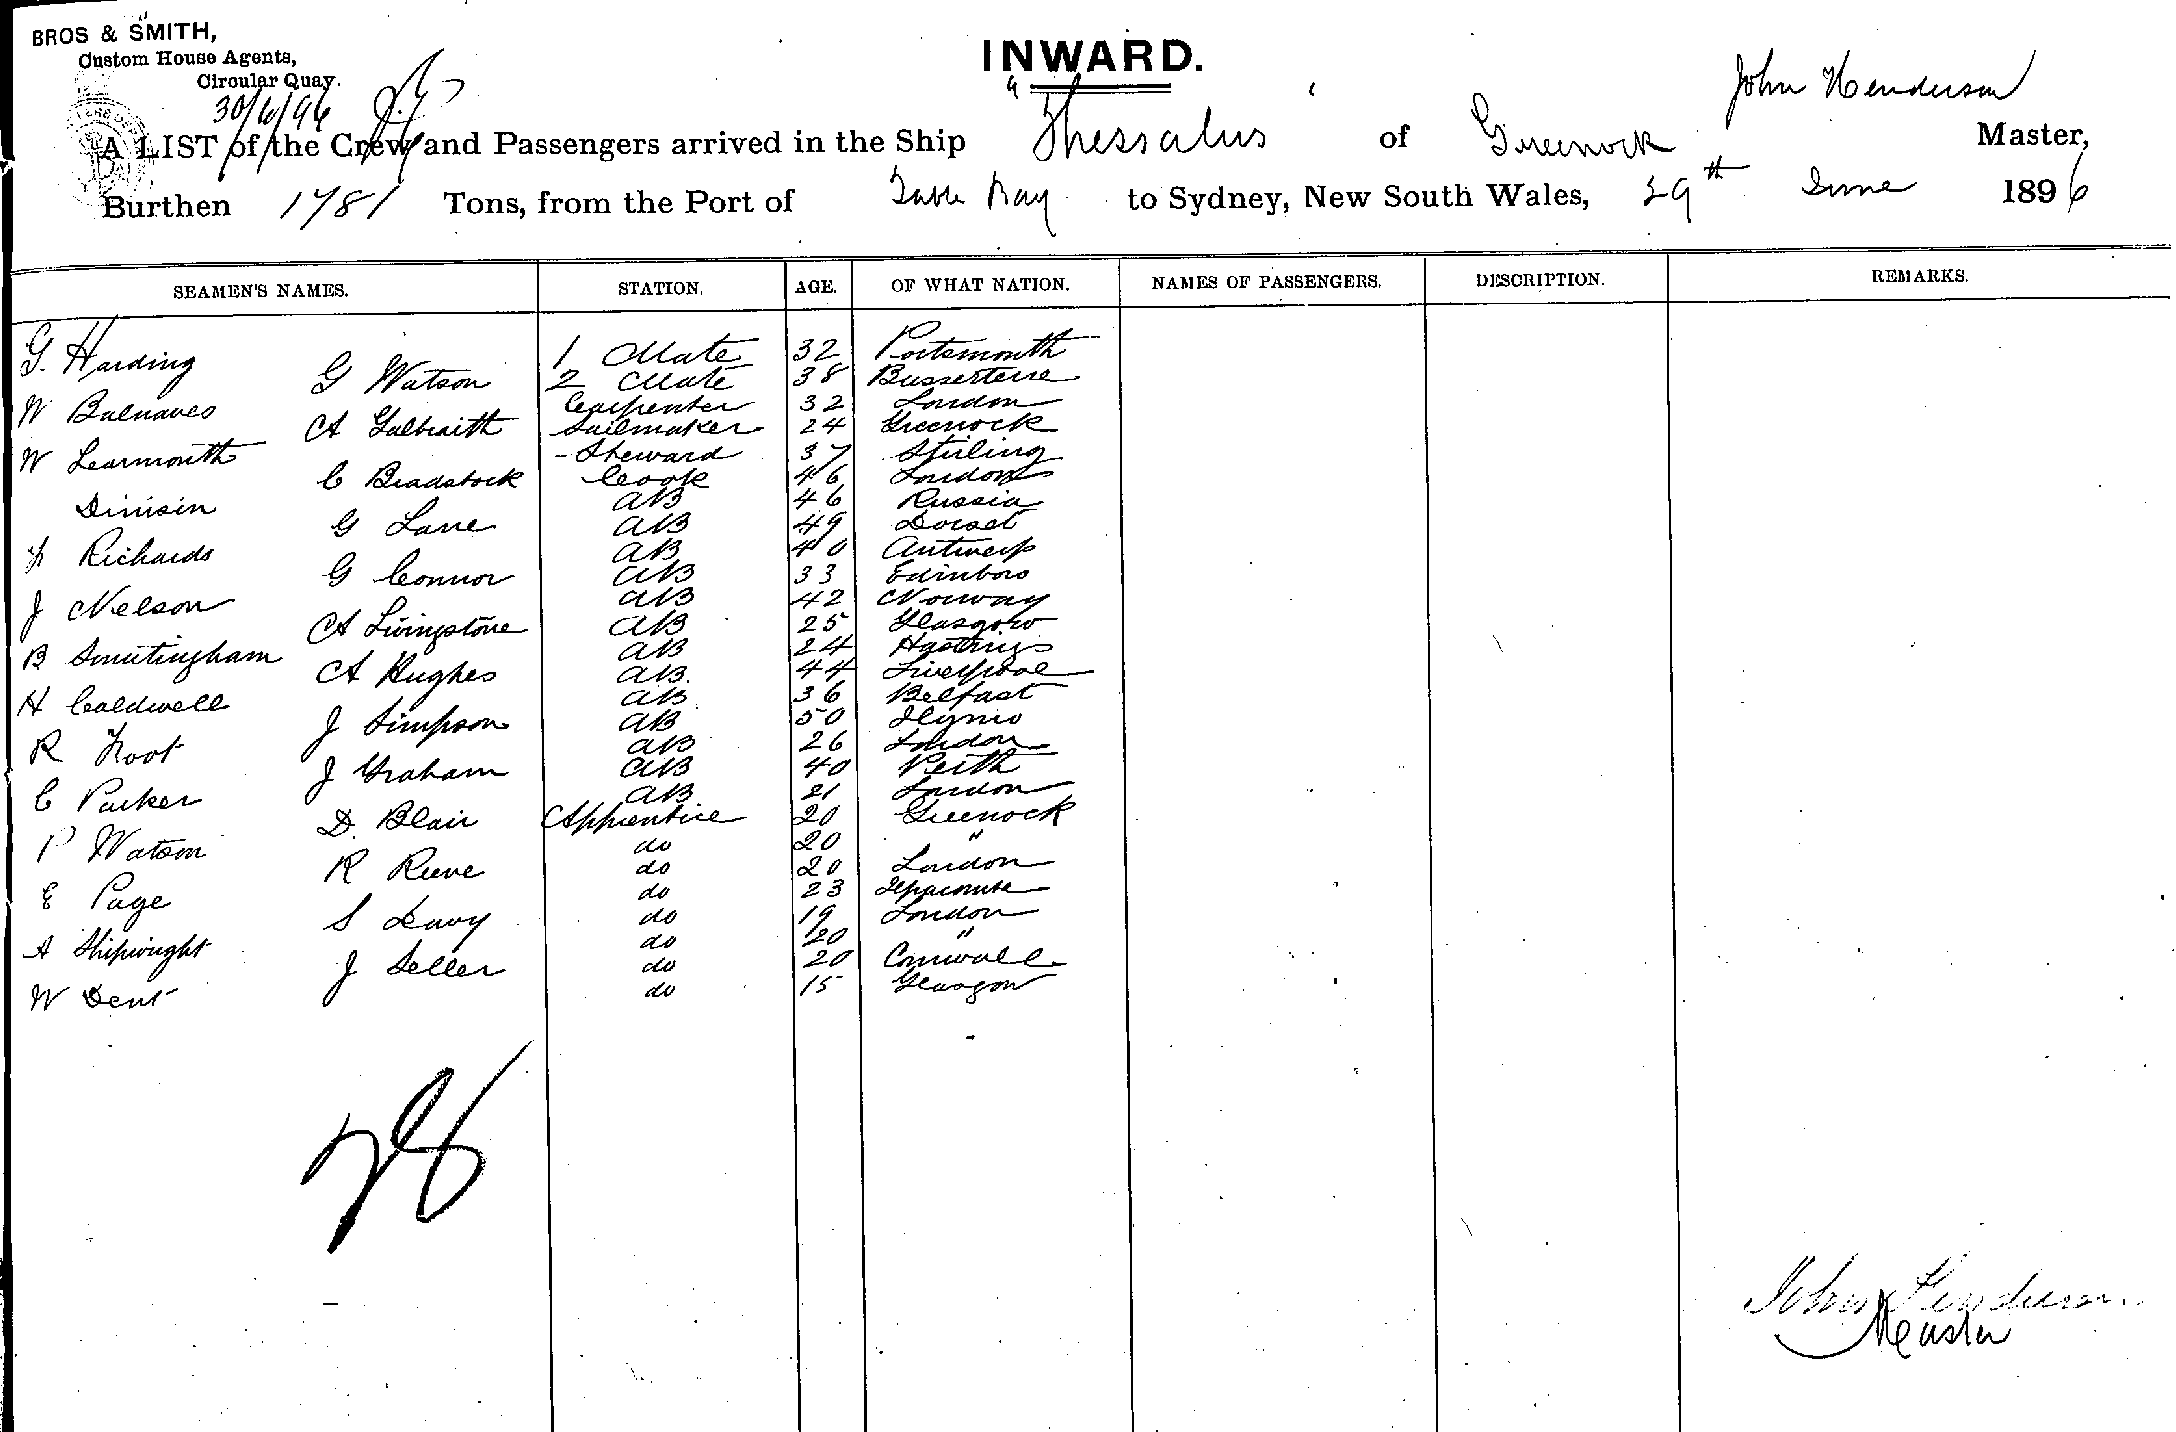 BROS & SMITH,
Custom House Agents,
Circular Quay.
30/6/96
INWARD.
John Henderson
A LIST of the Crew and Passengers arrived in the Ship "Thessalus" of Greenock Master,
Burthen 1781 Tons, from the Port of Table Bay to Sydney, New South Wales, 29th June 1896
SEAMEN'S NAMES. STATION. AGE. OF WHAT NATION. NAMES OF PASSENGERS. DESCRIPTION. REMARKS.
G. Harding 1 Mate 32 Portsmouth
G Watson 2 Mate 38 Busserterre
W Balnaves Carpenter 32 London
A Galbraith Sailmaker 24 Greenock
W Learmonth Steward 37 Stirling
C Bradstock Cook 46 London
Dinisin AB 46 Russia
G Lane AB 49 Dorset
Richards AB 40 Antwerp
G Connor AB 33 Edinboro
J Nelson AB 42 Norway
A Livingstone AB 25 Glasgow
B AB 24 Hastings
A Hughes AB 44 Liverpool
H Caldwell AB 36 Belfast
J Simpson AB 50
R Root AB 26 London
J Graham AB 40 Perth
C Parker AB 21 London
D. Blair Apprentice 20 Greenock
P Watson do 20 "
R Reeve do 20 London
E Page do 23
S Davy do 19 London
A Shipwright do 20 "
J Seller do 20 Cornwall
W Dent do 15 Glasgow
John Henderson
Master